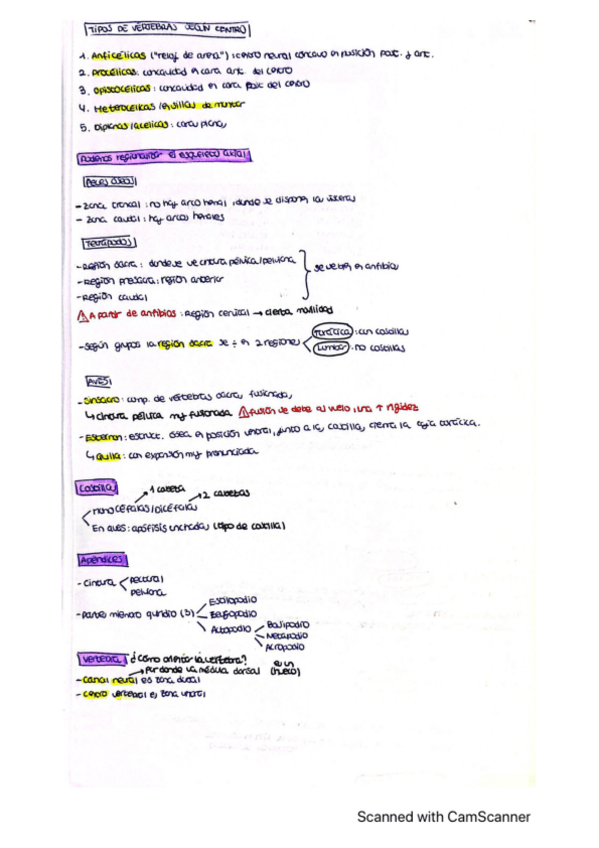 TIPOS DE VÉRTEBRAS SEGÚN CENTRO
1. Anficélicas ("reloj de arena") : centro neural concavo en posición post. y ant.
2. Procélicas: concavidad en cara ant. del centro
3. Opistocélicas : concavidad en cara post del centro
4. Heterocélicas / en sillas de montar
5. Diplanas / acélicas : caras planas
Podemos regionalizar el esqueleto axial
Peces óseos
- Zona troncal : no hay arco hemal, donde se disponen las vísceras
- Zona caudal : hay arcos hemales
Tetrápodos
- Región sacra : donde se ve cintura pélvica / pelviana
- Región presacra : región anterior
- Región caudal
se ve bien en anfibios
⚠ A partir de anfibios : Región cervical → cierta movilidad
- Según grupos la región sacra se ÷ en 2 regiones
Torácica : con costillas
Lumbar : no costillas
AVES
- Sinsacro : comp. de vértebras sacras fusionadas
↳ cintura pélvica muy fusionada ⚠ fusión se debe al vuelo, una ↑ rigidez
- Esternón : estruct. ósea en posición ventral, junto a las costillas, cierra la caja torácica.
↳ Quilla : con expansión muy pronunciada
Costillas
→ 1 cabeza → 2 cabezas
monocéfalas / dicéfalas
En aves : apófisis uncinadas (tipo de costilla)
Apéndices
- Cintura
pectoral
pelviana
- Parte miembro quiridio (3)
Estilopodio
Zeugopodio
Autopodio
Basipodio
Metapodio
Acropodio
Vértebra ¿Cómo orientar la vértebra?
→ por donde va médula dorsal (es un hueco)
- Canal neural es zona dorsal
- Centro vertebral es zona ventral
Scanned with CamScanner